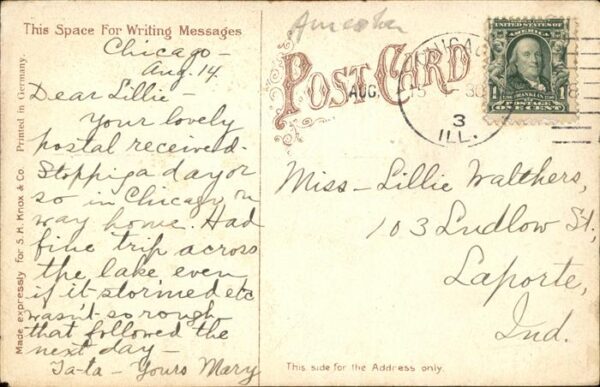 This Space For Writing Messages
Chicago -
Aug. 14.
Dear Lillie -
Your lovely
postal received.
Stopping a day or
so in Chicago on
way home. Had
fine trip across
the lake even
if it stormed etc
wasn't so rough
that followed the
next day -
Ta-ta - Yours Mary
Made expressly for S. H. Knox & Co. Printed in Germany.
POST CARD
AUG. 15
3
ILL.
UNITED STATES OF AMERICA
FRANKLIN
POSTAGE
ONE CENT
Miss - Lillie Walthers,
103 Ludlow St.,
Laporte,
Ind.
This side for the Address only.